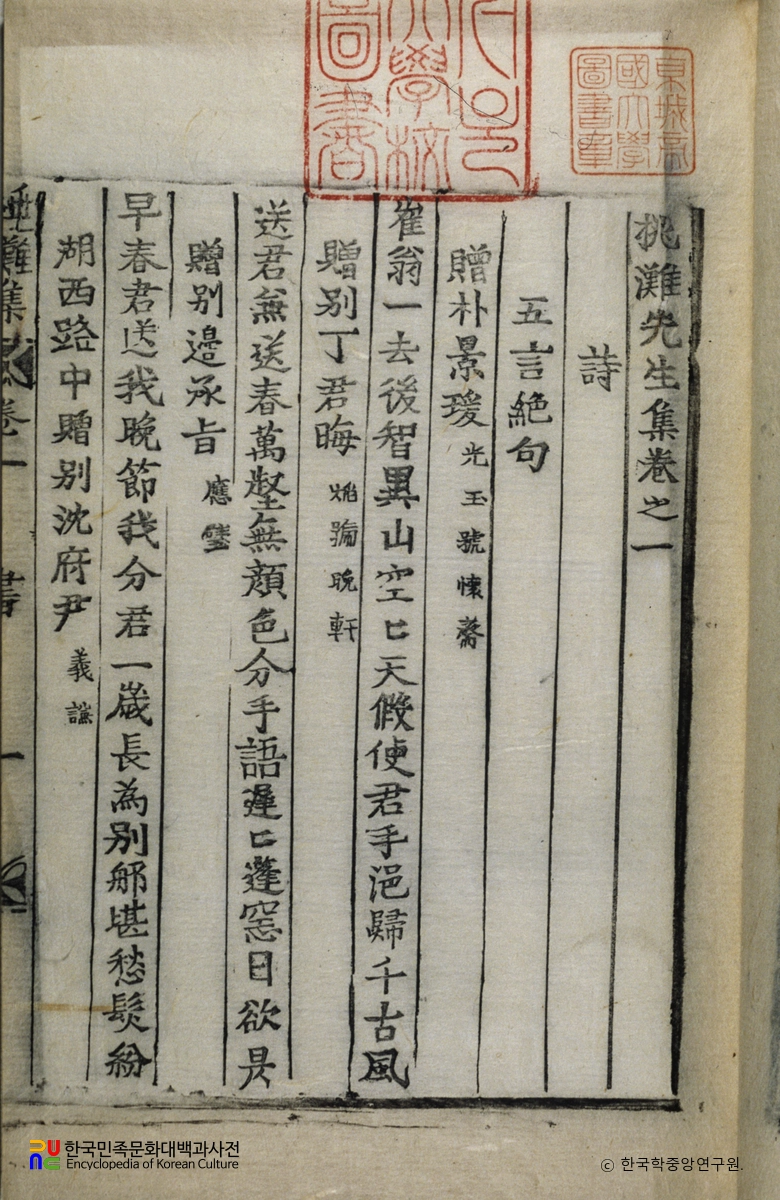 桃灘先生集卷之一
詩
五言絶句
贈朴景瑗 光玉號懷齋
崔翁一去後智異山空匕天假使君手浥歸千古風
贈別丁君晦 焰號晚軒
送君無送春萬壑無顔色分手語遲匕蓬窓日欲昃
贈別邉承旨 應璧
早春君送我晚節我分君一歲長為別那堪愁髮紛
湖西路中贈別沈府尹 義謙
灘集 卷一 詩 一
圖書
大學校
東城高
國大學
圖書章
한국민족문화대백과사전
Encyclopedia of Korean Culture
© 한국학중앙연구원.